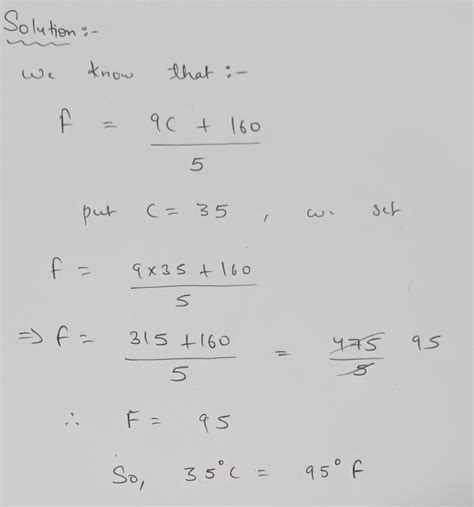 Solution :-
We know that :-
f = 9C + 160 / 5
put C = 35 , we get
f = 9×35 + 160 / 5
=> f = 315 + 160 / 5 = 475 / 5 95
∴ F = 95
So, 35°C = 95° f